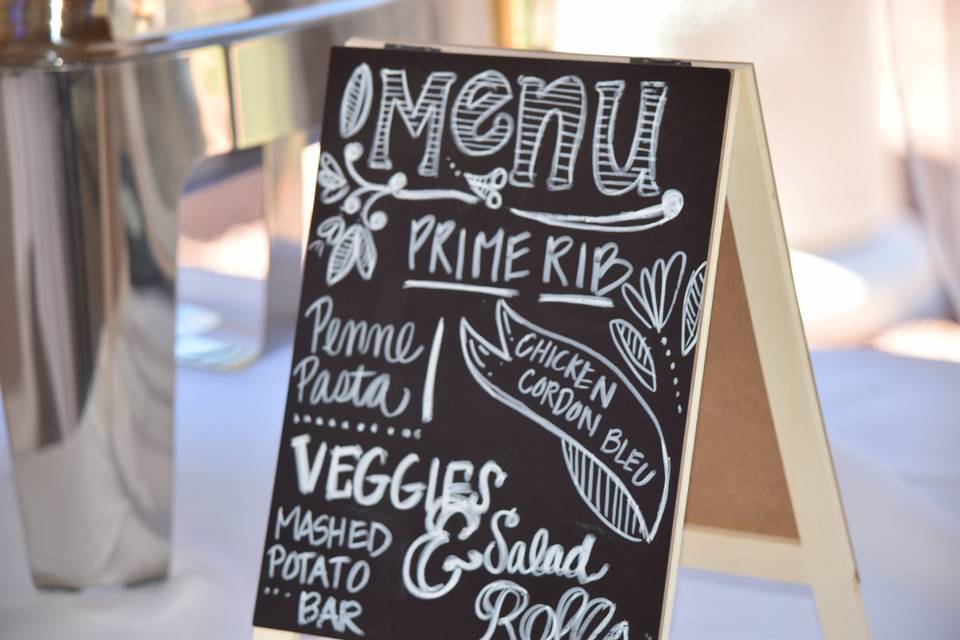 Menu
PRIME RIB
Penne
Pasta
CHICKEN
CORDON BLEU
VEGGIES
MASHED
POTATO
BAR
& Salad
Rolls